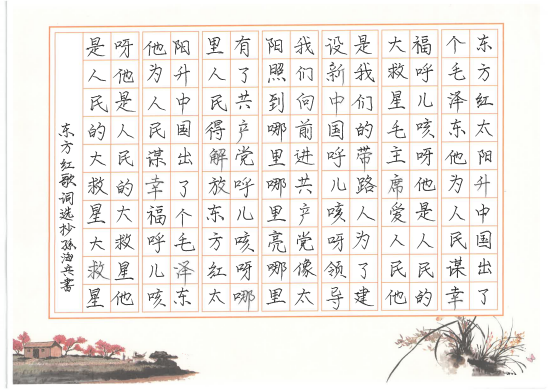 东方红太阳升中国出了
个毛泽东他为人民谋幸
福呼儿咳呀他是人民的
大救星毛主席爱人民他
是我们的带路人为了建
设新中国呼儿咳呀领导
我们向前进共产党像太
阳照到哪里哪里亮哪里
有了共产党呼儿咳呀哪
里人民得解放东方红太
阳升中国出了个毛泽东
他为人民谋幸福呼儿咳
呀他是人民的大救星他
是人民的大救星大救星
东方红歌词选抄孙海兵书